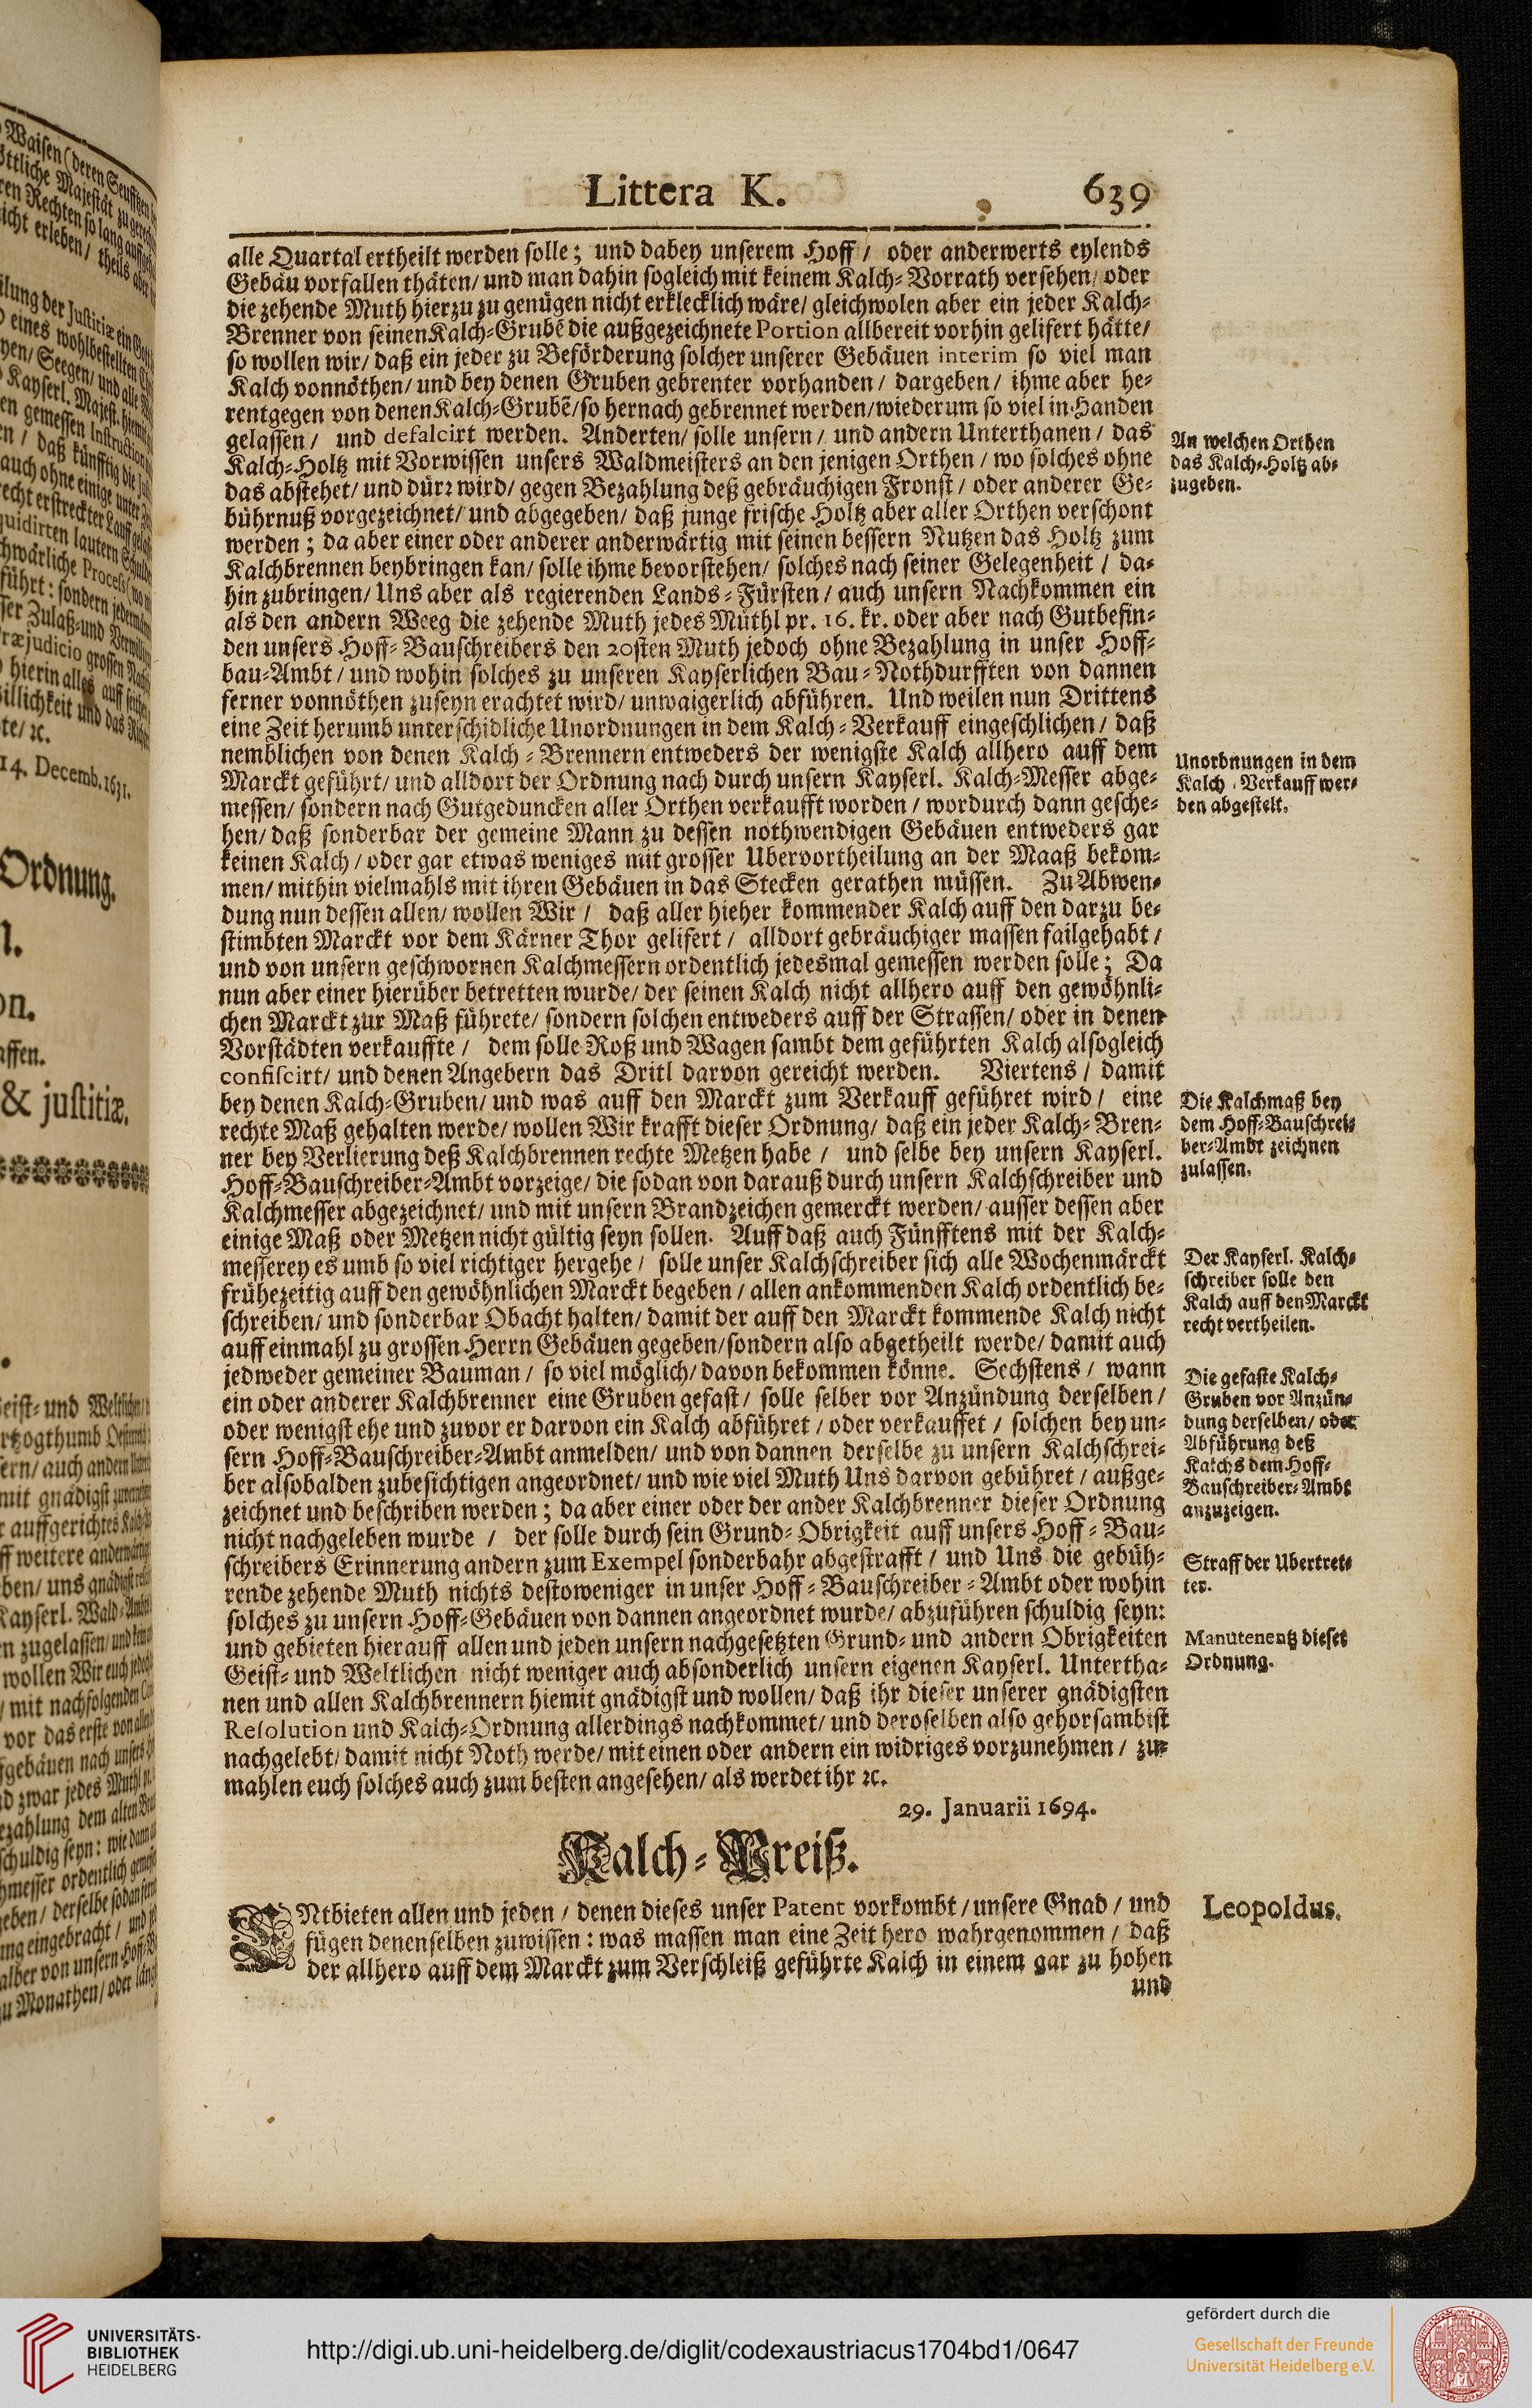 Littera K. 639
alle Quartal ertheilt werden solle; und dabey unserem Hoff / oder anderwerts eylends
Gebäu vorfallen thäten/ und man dahin sogleich mit keinem Kalch-Vorrath versehen/ oder
die zehende Muth hierzu zu genügen nicht erklecklich wäre/ gleichwolen aber ein jeder Kalch-
Brenner von seinen Kalch-Grubē die außgezeichnete Portion allbereit vorhin gelifert hätte/
so wollen wir/ daß ein jeder zu Beförderung solcher unserer Gebäuen interim so viel man
Kalch vonnöthen/ und bey denen Gruben gebrenter vorhanden / dargeben / ihme aber he-
rentgegen von denen Kalch-Grubē/ so hernach gebrennet werden/ wiederum so viel in Handen
gelassen / und defalcirt werden. Anderten/ solle unsern / und andern Unterthanen / das
Kalch-Holtz mit Vorwissen unsers Waldmeisters an den jenigen Orthen / wo solches ohne
das abstehet/ und dürr wird/ gegen Bezahlung deß gebräuchigen Fronst / oder anderer Ge-
bührnuß vorgezeichnet/ und abgegeben/ daß junge frische Holtz aber aller Orthen verschont
werden; da aber einer oder anderer anderwärtig mit seinen bessern Nutzen das Holtz zum
Kalchbrennen beybringen kan/ solle ihme bevorstehen/ solches nach seiner Gelegenheit / da-
hin zubringen/ Uns aber als regierenden Lands-Fürsten / auch unsern Nachkommen ein
als den andern Weeg die zehende Muth jedes Müthl pr. 16. kr. oder aber nach Gutbefin-
den unsers Hoff-Bauschreibers den 20sten Muth jedoch ohne Bezahlung in unser Hoff-
bau-Ambt / und wohin solches zu unseren Kayserlichen Bau-Nothdurfften von dannen
ferner vonnöthen zuseyn erachtet wird/ unwaigerlich abführen. Und weilen nun Drittens
eine Zeit herumb unterschidliche Unordnungen in dem Kalch-Verkauff eingeschlichen / daß
nemblichen von denen Kalch-Brennern entweders der wenigste Kalch allhero auff dem
Marckt geführt/ und alldort der Ordnung nach durch unsern Kayserl. Kalch-Messer abge-
messen/ sondern nach Gutgeduncken aller Orthen verkaufft worden / wordurch dann gesche-
hen/ daß sonderbar der gemeine Mann zu dessen nothwendigen Gebäuen entweders gar
keinen Kalch / oder gar etwas weniges mit grosser Ubervortheilung an der Maaß bekom-
men/ mithin vielmahls mit ihren Gebäuen in das Stecken gerathen müssen. Zu Abwen-
dung nun dessen allen/ wollen Wir / daß aller hieher kommender Kalch auff den darzu be-
stimbten Marckt vor dem Kärner Thor gelifert / alldort gebräuchiger massen failgehabt /
und von unsern geschwornen Kalchmessern ordentlich jedesmal gemessen werden solle; Da
nun aber einer hierüber betretten wurde/ der seinen Kalch nicht allhero auff den gewöhnli-
chen Marckt zur Maß führete/ sondern solchen entweders auff der Strassen/ oder in denen
Vorstädten verkauffte / dem solle Roß und Wagen sambt dem geführten Kalch alsogleich
confiscirt/ und denen Angebern das Dritl darvon gereicht werden. Viertens / damit
bey denen Kalch-Gruben/ und was auff den Marckt zum Verkauff geführet wird / eine
rechte Maß gehalten werde/ wollen Wir krafft dieser Ordnung/ daß ein jeder Kalch-Bren-
ner bey Verlierung deß Kalchbrennen rechte Metzen habe / und selbe bey unsern Kayserl.
Hoff-Bauschreiber-Ambt vorzeige/ die sodan von darauß durch unsern Kalchschreiber und
Kalchmesser abgezeichnet/ und mit unsern Brandzeichen gemerckt werden/ ausser dessen aber
einige Maß oder Metzen nicht gültig seyn sollen. Auff daß auch Fünfftens mit der Kalch-
messerey es umb so viel richtiger hergehe / solle unser Kalchschreiber sich alle Wochenmärckt
frühezeitig auff den gewöhnlichen Marckt begeben / allen ankommenden Kalch ordentlich be-
schreiben/ und sonderbar Obacht halten/ damit der auff den Marckt kommende Kalch nicht
auff einmahl zu grossen Herrn Gebäuen gegeben/ sondern also abgetheilt werde/ damit auch
jedweder gemeiner Bauman / so viel möglich/ davon bekommen könne. Sechstens / wann
ein oder anderer Kalchbrenner eine Gruben gefast / solle selber vor Anzündung derselben /
oder wenigst ehe und zuvor er darvon ein Kalch abführet / oder verkauffet / solchen bey un-
sern Hoff-Bauschreiber-Ambt anmelden/ und von dannen derselbe zu unsern Kalchschrei-
ber alsobalden zubesichtigen angeordnet/ und wie viel Muth Uns darvon gebühret / außge-
zeichnet und beschriben werden; da aber einer oder der ander Kalchbrenner dieser Ordnung
nicht nachgeleben wurde / der solle durch sein Grund-Obrigkeit auff unsers Hoff-Bau-
schreibers Erinnerung andern zum Exempel sonderbahr abgestrafft / und Uns die gebüh-
rende zehende Muth nichts destoweniger in unser Hoff-Bauschreiber-Ambt oder wohin
solches zu unsern Hoff-Gebäuen von dannen angeordnet wurde/ abzuführen schuldig seyn:
und gebieten hierauff allen und jeden unsern nachgesetzten Grund- und andern Obrigkeiten
Geist- und Weltlichen nicht weniger auch absonderlich unsern eigenen Kayserl. Untertha-
nen und allen Kalchbrennern hiemit gnädigst und wollen/ daß ihr dieser unserer gnädigsten
Resolution und Kalch-Ordnung allerdings nachkommet/ und deroselben also gehorsambist
nachgelebt/ damit nicht Noth werde/ mit einen oder andern ein widriges vorzunehmen / zu-
mahlen euch solches auch zum besten angesehen/ als werdet ihr ꝛc.
29. Januarii 1694.
An welchen Orthen
das Kalch-Holtz ab-
zugeben.
Unordnungen in dem
Kalch-Verkauff wer-
den abgestelt.
Die Kalchmaß bey
dem Hoff-Bauschrei-
ber-Ambt zeichnen
zulassen.
Der Kayserl. Kalch-
schreiber solle den
Kalch auff den Marckt
recht vertheilen.
Die gefaste Kalch-
Gruben vor Anzün-
dung derselben/ oder
Abführung deß
Kalchs dem Hoff-
Bauschreiber-Ambt
anzuzeigen.
Straff der Ubertret-
ter.
Manutenentz dieser
Ordnung.
Kalch-Preiß.
ENtbieten allen und jeden / denen dieses unser Patent vorkombt / unsere Gnad / und
fügen denenselben zuwissen: was massen man eine Zeit hero wahrgenommen / daß
der allhero auff dem Marckt zum Verschleiß geführte Kalch in einem gar zu hohen
und
Leopoldus.
Waisen (deren Seufftzen
Ordnung.
14. Decemb. 1631.
& justitiæ.
UNIVERSITÄTS-
BIBLIOTHEK
HEIDELBERG
http://digi.ub.uni-heidelberg.de/diglit/codexaustriacus1704bd1/0647
gefördert durch die
Gesellschaft der Freunde
Universität Heidelberg e.V.